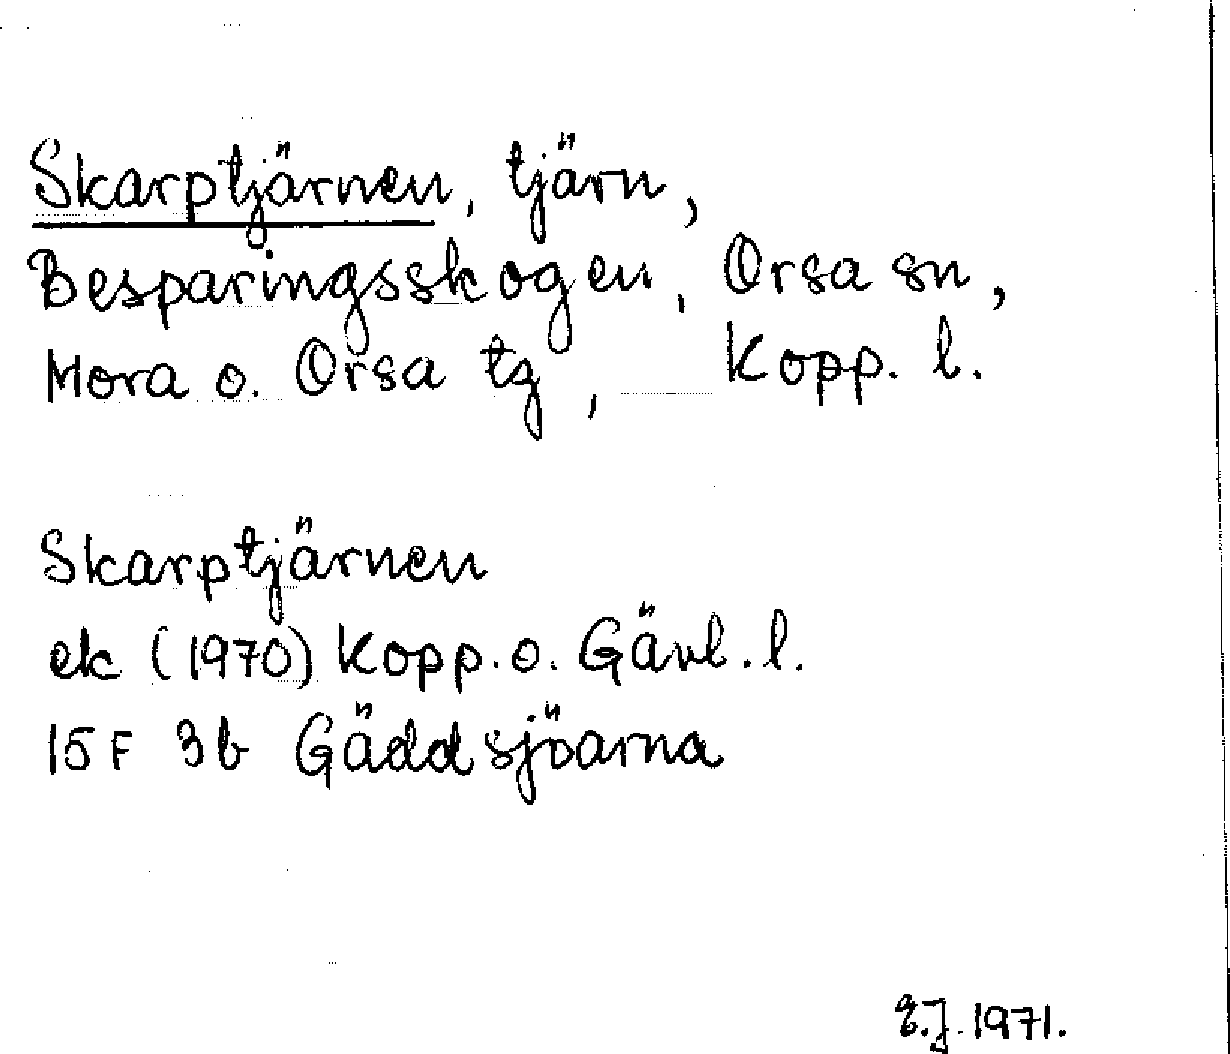 Skarptjärnen, tjärn,
Besparingsskogen, Orsa sn,
Mora o. Orsa tg, Kopp. l.
Skarptjärnen
ek (1970) Kopp. o. Gävl. l.
15F 3b Gäddsjöarna
E.J. 1971.